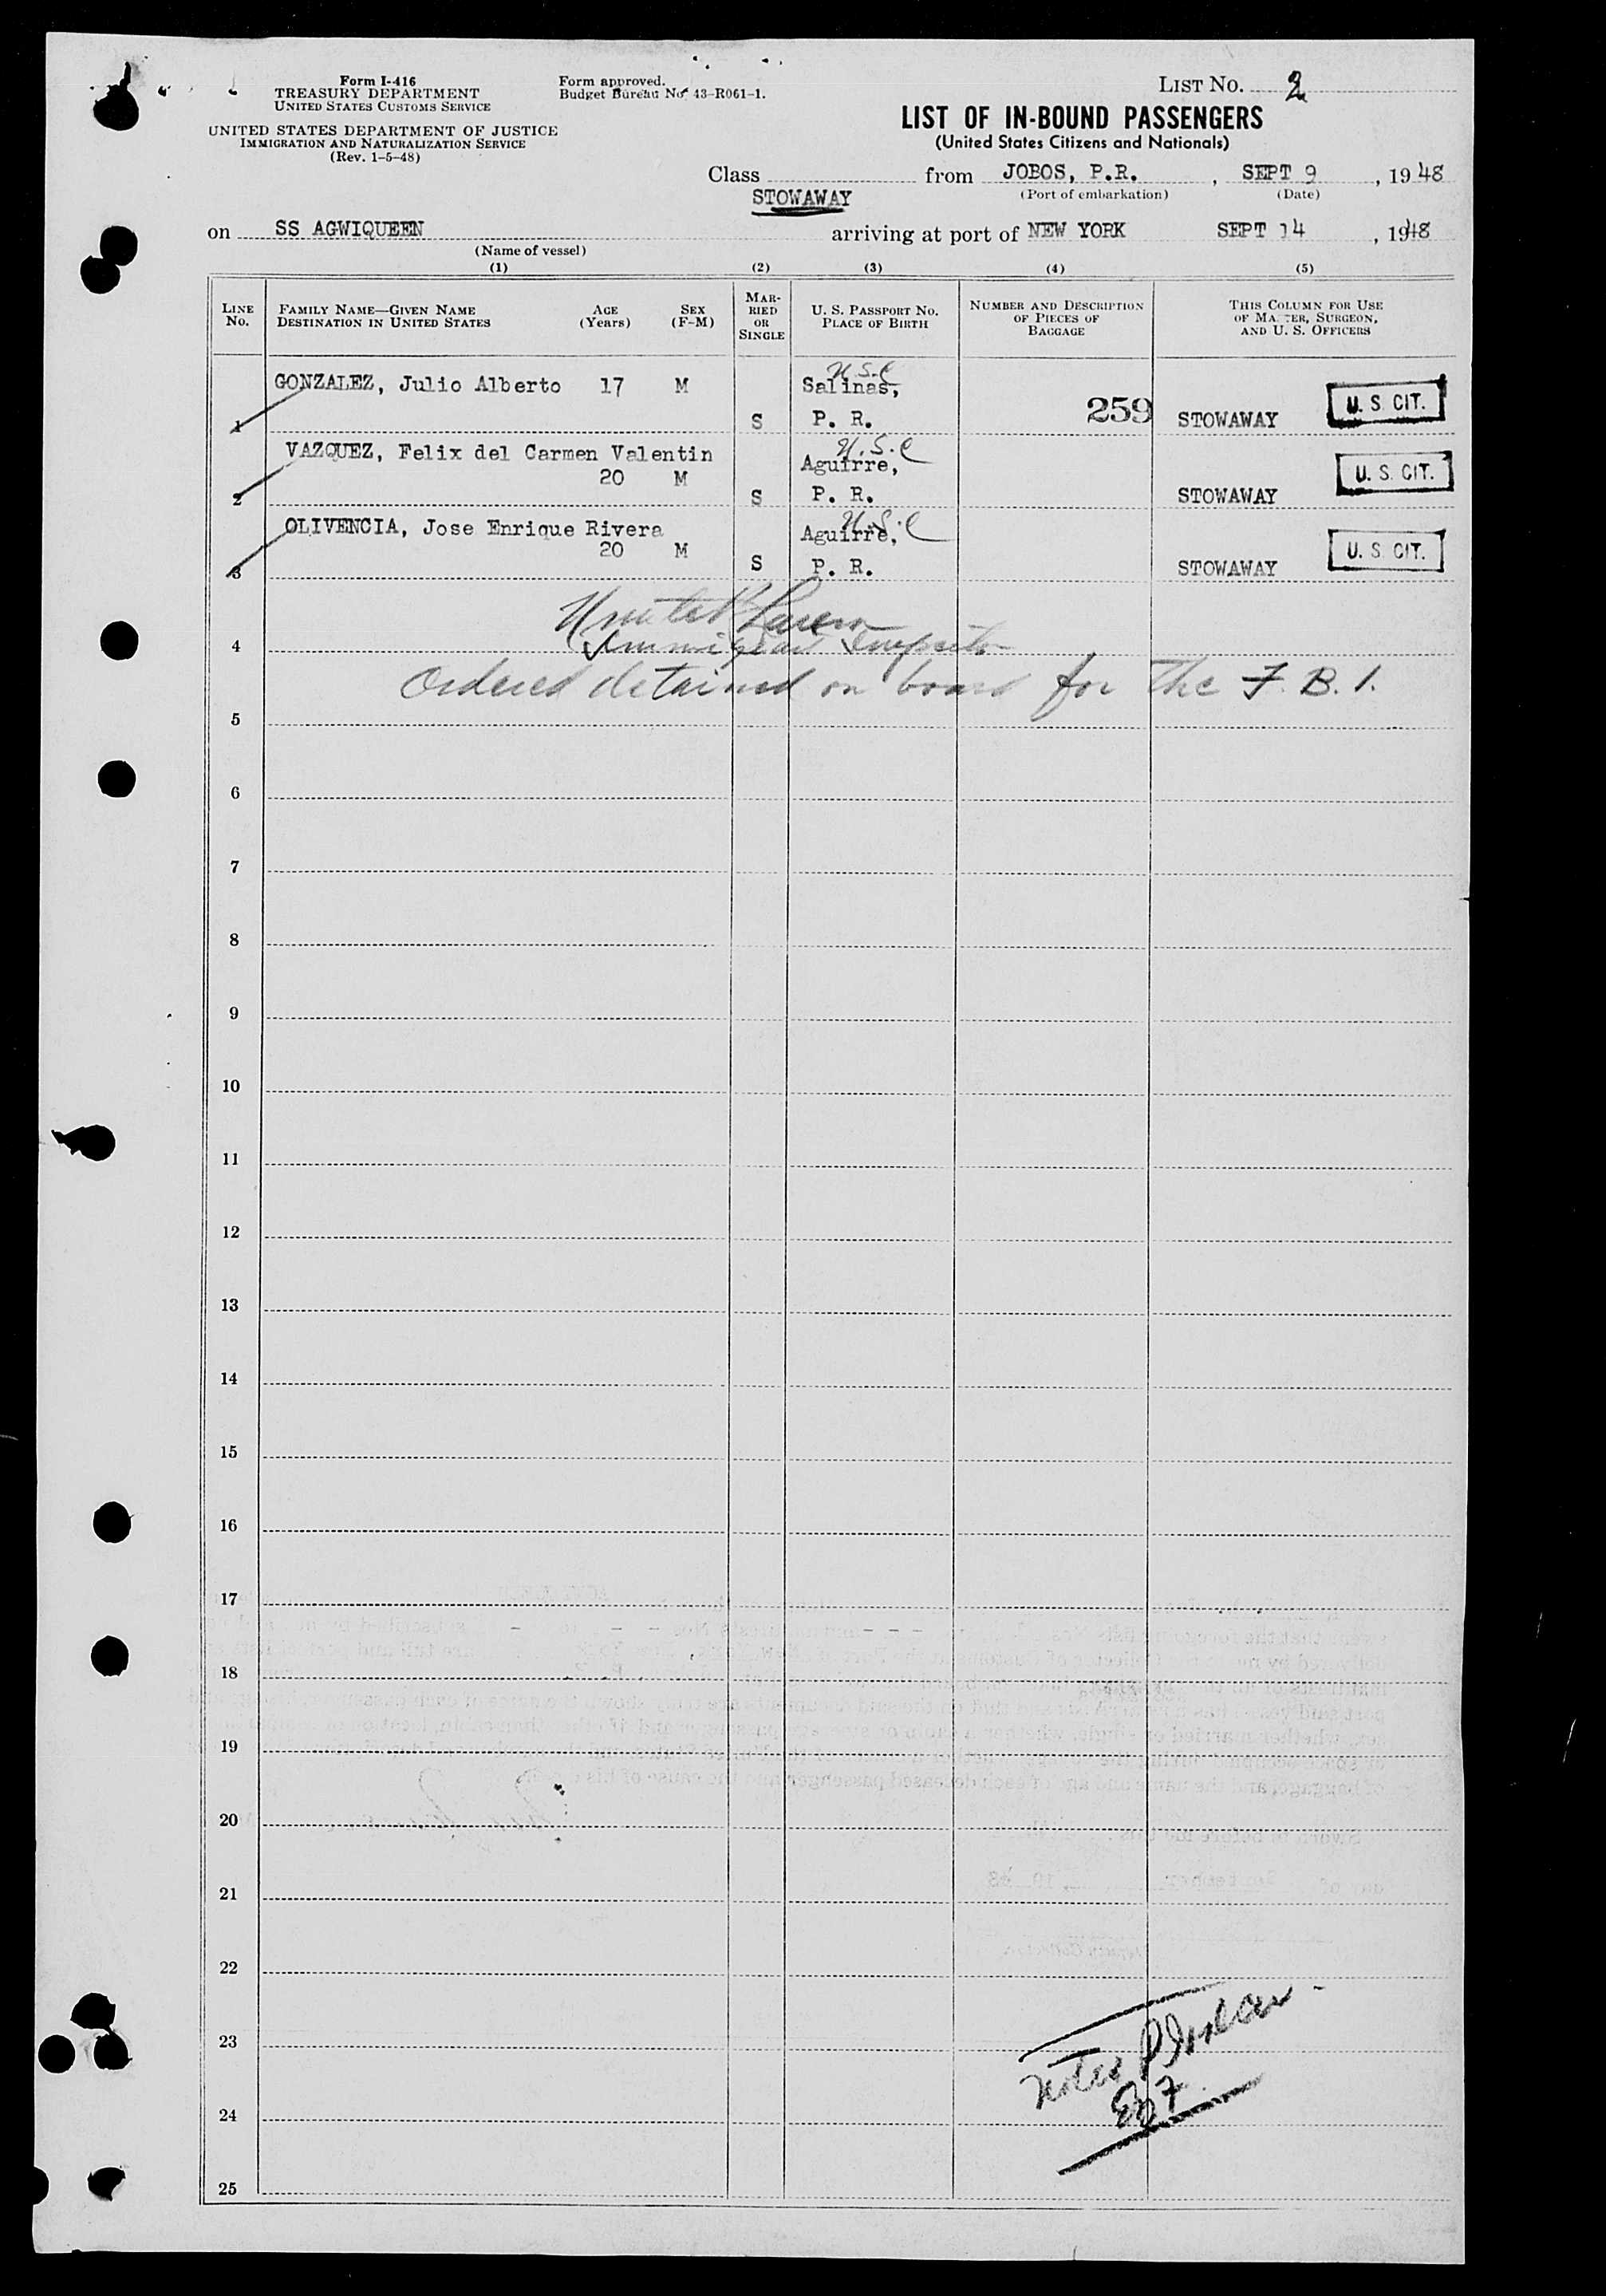 Form I-416
TREASURY DEPARTMENT
UNITED STATES CUSTOMS SERVICE
UNITED STATES DEPARTMENT OF JUSTICE
IMMIGRATION AND NATURALIZATION SERVICE
(Rev. 1-5-48)
Form approved.
Budget Bureau No. 43-R061-1.
LIST NO. 2
LIST OF IN-BOUND PASSENGERS
(United States Citizens and Nationals)
Class STOWAWAY from JOBOS, P.R., SEPT 9, 1948
(Port of embarkation) (Date)
on SS AGWIQUEEN arriving at port of NEW YORK SEPT 14, 1948
(Name of vessel)
(1) (2) (3) (4) (5)
LINE No. FAMILY NAME—GIVEN NAME DESTINATION IN UNITED STATES AGE (Years) SEX (F-M) MARRIED OR SINGLE U. S. PASSPORT NO. PLACE OF BIRTH NUMBER AND DESCRIPTION OF PIECES OF BAGGAGE THIS COLUMN FOR USE OF MASTER, SURGEON, AND U. S. OFFICERS
U.S.C
GONZALEZ, Julio Alberto 17 M Salinas,
1 S P. R. 259 STOWAWAY U. S. CIT.
U.S.C
VAZQUEZ, Felix del Carmen Valentin Aguirre,
20 M
2 S P. R. STOWAWAY U. S. CIT.
U.S.C
OLIVENCIA, Jose Enrique Rivera Aguirre,
20 M
3 S P. R. STOWAWAY U. S. CIT.
4
Ordered detained on board for the F.B.I.
5
6
7
8
9
10
11
12
13
14
15
16
17
18
19
20
21
22
23
24
25